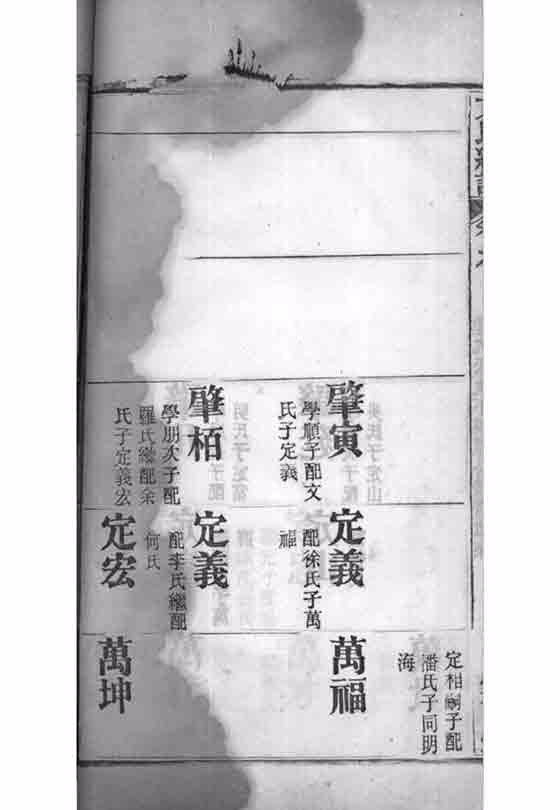 定相嗣子配
潘氏子同明
海
肇寅
學順子配文
氏子定義
定義
配徐氏子萬
福
萬福
肇栢
學朋次子配
羅氏繼配余
氏子定義宏
定義
配李氏繼配
何氏
定宏
萬坤